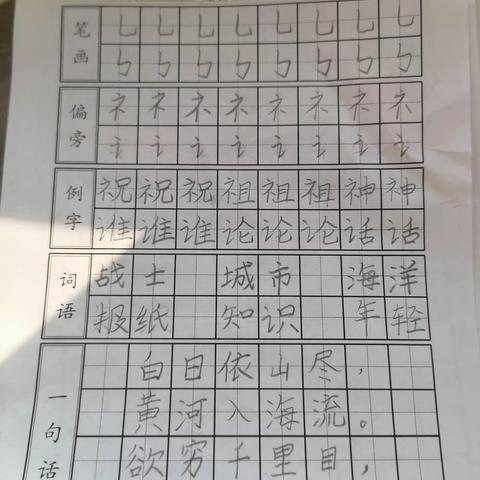 笔画
乚 乚 乚 乚 乚 乚 乚 乚
ㄅ ㄅ ㄅ ㄅ ㄅ ㄅ ㄅ ㄅ
偏旁
礻 礻 礻 礻 礻 礻 礻 礻
讠 讠 讠 讠 讠 讠 讠 讠
例字
祝 祝 祝 祖 祖 祖 神 神
谁 谁 谁 论 论 论 话 话
词语
战士 城市 海洋
报纸 知识 年轻
一句话
白日依山尽，
黄河入海流。
欲穷千里目，